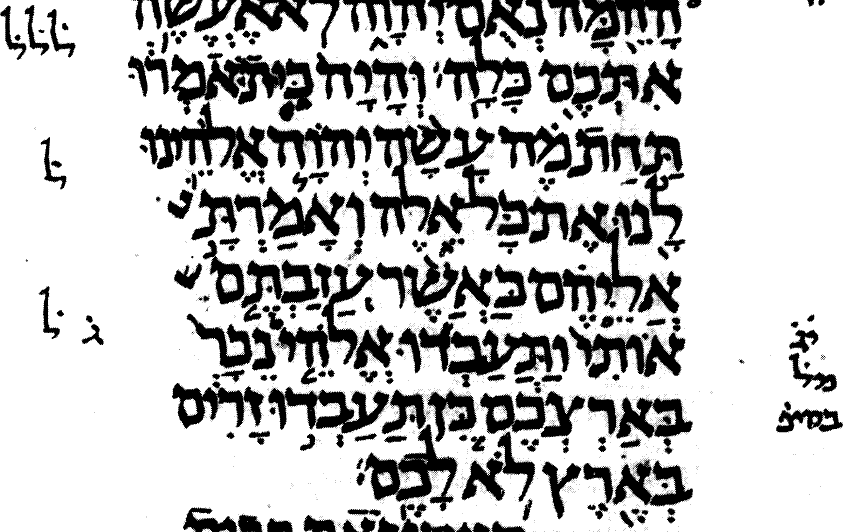 הָהֵמָּה נְאֻם יְהוָה לֹא אֶעֱשֶׂה
אִתְּכֶם כָּלָה׃ וְהָיָה כִּי תֹאמְרוּ
תַּחַת מֶה עָשָׂה יְהוָה אֱלֹהֵינוּ
לָנוּ אֶת כָּל אֵלֶּה וְאָמַרְתָּ
אֲלֵיהֶם כַּאֲשֶׁר עֲזַבְתֶּם
אוֹתִי וַתַּעַבְדוּ אֱלֹהֵי נֵכָר
בְּאַרְצְכֶם כֵּן תַּעַבְדוּ זָרִים
בְּאֶרֶץ לֹא לָכֶם׃
ל ל ל
ל
ל
ג